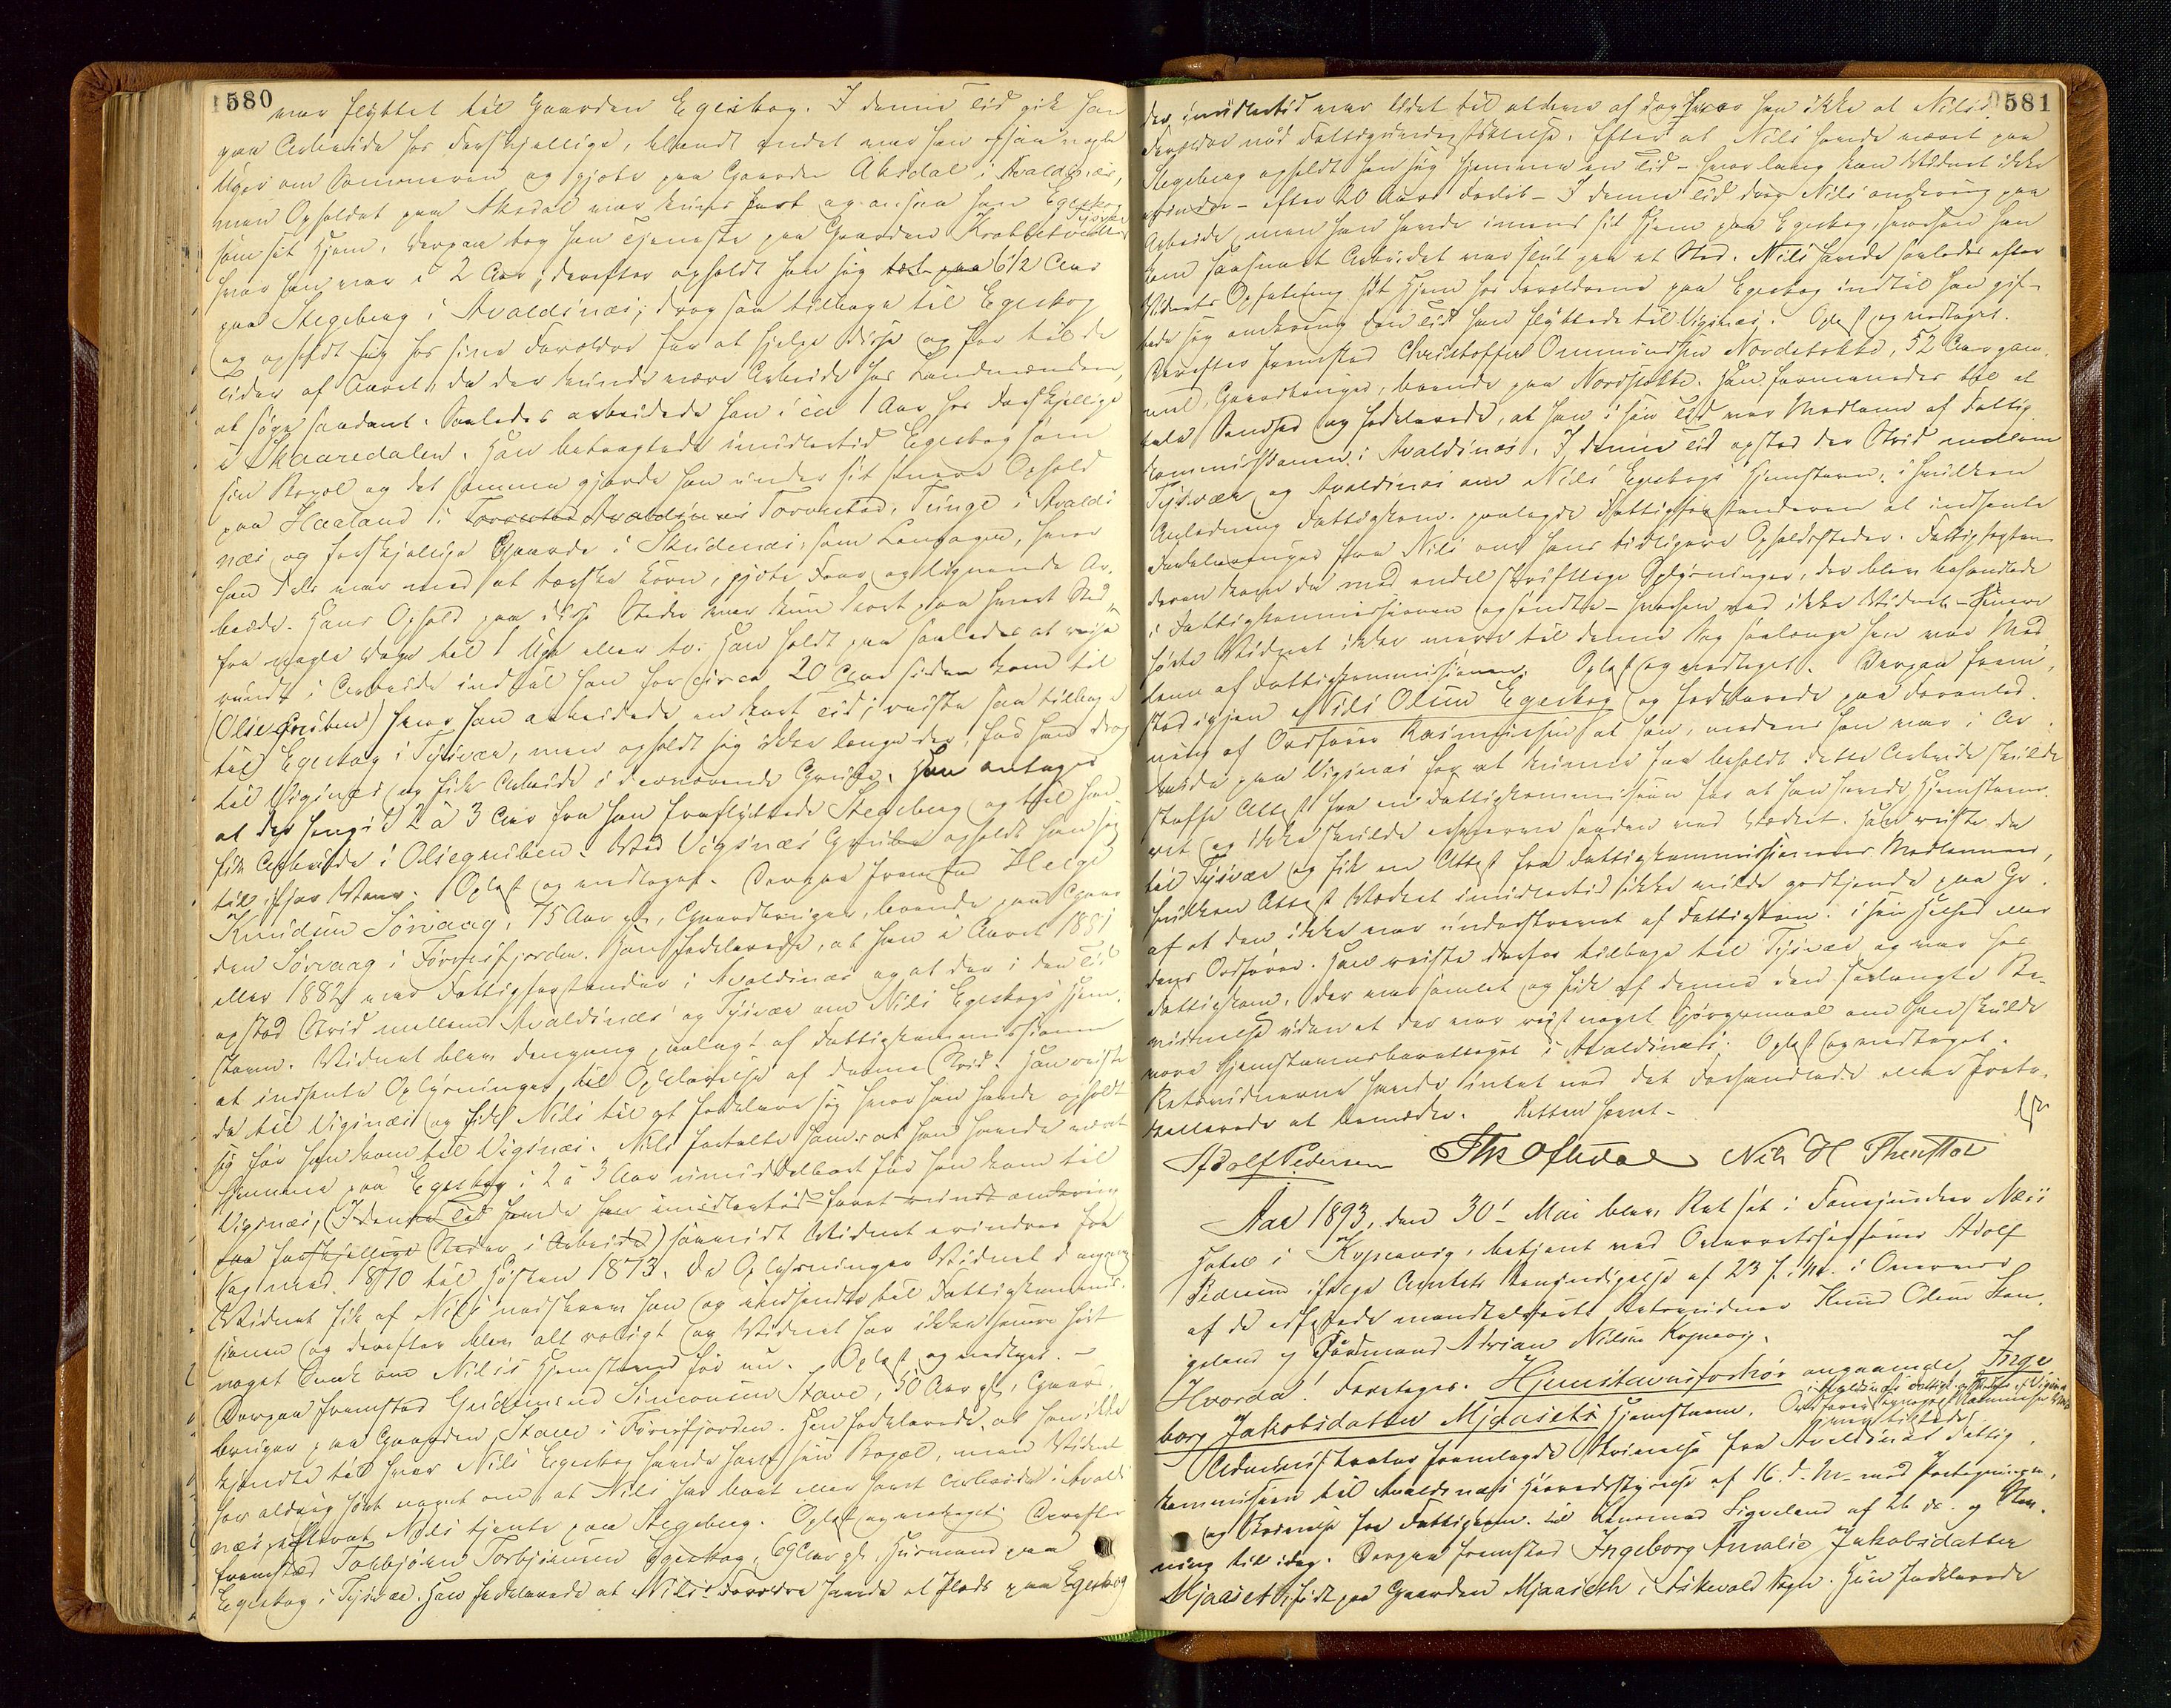 580
var flyttet til Gaarden Egeskog. I denne Tid gik han
paa Arbeide hos Forskjellige, blandt andet var han ogsaa nogle
Uger om Sommeren og gjæte paa Gaarden Aksdal i Avaldsnæs,
men Opholdet paa Aksdal var kun kort og ansaa han Egeskog
som sit Hjem. Derpaa tog han Tjeneste paa Gaarden Krabbetveidt Tysvær
hvor han var i 2 Aar; derefter opholdt han sig 6 1/2 Aar
paa Stegeberg i Avaldsnæs; drog saa tilbage til Egeskog
og opholdt sig hos sine Forældre for at hjelpe disse og for til de
Tider af Aaret, da der kunde være Arbeide hos Landmænden,
at søge saadant. Saaledes arbeidede han i ca 1 Aar hos Forskjellige
i Skaaredalen. Han betragtede imidlertid Egeskog som
sin Bopæl og det samme gjorde han under sit senere Ophold
paa Haaland i Torvestad Avaldsnes Torvestad, Tunge i Avalds
næs og forskjellige Gaarde i Skudenæs, som Langager, hvor
han dels var med at tærske Korn, gjæte Faar og lignende Ar-
beide. Hans Ophold paa disse Steder var kun kort paa hvert Sted,
fra nogle Dage til 1 Uge eller to. Han holdt paa saaledes at reise
rundt i Arbeide indtil han for circa 20 Aar siden kom til
(Olsegruben) hvor han arbeidede en kort Tid; reiste saa tilbage
til Egeskog i Tysvær, men opholdt sig ikke længe der, før han drog
til Vigsnæs og fik Arbeide i derværende Grube. Han antager
at der hengik 2 à 3 Aar fra han fraflyttede Stegeberg og til han
fik Arbeide i Olsegruben. Ved Vigsnæs Grube opholdt han sig
til ifjor Vaar. Oplæst og vedtaget. Derpaa fremstod Helge
Knudsen Sørvaag, 75 Aar gl., Gaardbruger, boende paa Gaar
den Sørvaag i Førresfjorden. Han forklarede, at han i Aaret 1881
eller 1882 var Fattigforstander i Avaldsnæs og at der i den Tid
opstod Strid mellem Avaldsnæs og Tysvær om Nils Egeskogs Hjem-
stavn. Vidnet blev dengang paalagt af Fattigkommissionen
at indhente Oplysninger til Opklarelse af denne Strid. Han reiste
da til Vigsnæs og fik Nils til at forklare sig hvor han havde opholdt
sig før han kom til Vigsnæs. Nils fortalte ham at han havde været
hjemme paa Egeskog i 2 à 3 Aar umiddelbart før han kom til
Vigsnæs, (I denne Tid havde han imidlertid faret rundt omkring
paa forskjellige Steder i Arbeide) saavidt Vidnet erindrer fra
Sag med 1870 til Høsten 1873. De Oplysninger Vidnet dengang
Vidnet fik af Nils nedskrev han og indsendte til Fattigkommis-
sionen og derefter blev alt roligt og Vidnet har ikke senere hørt
noget Snak om Nils's Hjemstavn før nu. Oplæst og vedtaget. –
Derpaa fremstod Gudmund Simonsen Stave, 50 Aar gl., Gaard-
bruger paa Gaarden Stave i Førresfjorden. Han forklarede, at han ikke
kjendte til hvor Nils Egeskog havde havt sin Bopæl, men Vidnet
har aldrig hørt noget om, at Nils har boet eller havt Arbeide i Avalds
næs, efterat Nils tjente paa Stegeberg. Oplæst og vedtaget. Derefter
fremstod Torbjørn Torbjørnsen Egeskog, 69 Aar gl., Husmand paa
Egeskog i Tysvær. Han forklarede at Nils's Forældre havde et Plads paa Egeskog
581
der imidlertid var lidet til
Forældre nød Fattigunderstøttelse. Efter at Nils havde været paa
Stegeberg opholdt han sig hjemme en Tid – hvor lang kan Vidnet ikke
erindre – efter 20 Aars Forløb – I denne Tid drog Nils omkring paa
Arbeide, men han havde imens sit Hjem paa Egeskog, hvorhen han
kom saasnart Arbeidet var slut paa et Sted. Nils havde saaledes efter
Vidnets Opfatning sit Hjem hos Forældrene paa Egeskog indtil han gif-
tede sig omkring den Tid han flyttede til Vigsnæs. Oplæst og vedtaget.
Derefter fremstod Christoffer Ommundsen Nordstokke, 52 Aar gam-
mel, Gaardbruger, boende paa Nordstokke. Han formanedes til at
tale Sandhed og forklarede, at han i sin Tid var Medlem af Fattig
kommissionen i Avaldsnæs. I denne Tid opstod der Strid mellem
Tysvær og Avaldsnæs om Nils Egeskogs Hjemstavn, i hvilken
Anledning Fattigkom. paalagde Fattigforstanderen at indhente
Forklaringer fra Nils om hans tidligere Opholdssteder. Fattigforstan-
deren kom da med endel skriftlige Oplysninger, der blev behandlede
i Fattigkommissionen og sendte – hvorhen ved ikke Vidnet – Senere
hørte Vidnet ikke mere til denne Sag saalænge han var Med
lem af Fattigkommissionen. Oplæst og vedtaget. Derpaa frem-
stod igjen Nils Olsen Egeskog og forklarede paa Foranled-
ning af Ordfører Rasmussen at han, medens han var i Ar-
beide paa Vigsnæs for at kunne faa beholdt dette Arbeide skulde
skaffe Attest fra en Fattigkommission for at han havde Hjemstavns-
ret og ikke skulde erhverve saadan ved Værket. Han reiste da
til Tysvær og fik en Attest fra Fattigkommissionens Medlemmer,
hvilken Attest Værket imidlertid ikke vilde godkjende paa Gr.
af at den ikke var underskrevet af Fattigkom. i sin Helhed eller
dens Ordfører. Han reiste derfor tilbage til Tysvær og var hos
Fattigkom. der var samlet og fik af denne den forlangte Be-
vidnelse uden at der var reist noget Spørgsmaal om han skulde
være hjemstavnsberettiget i Avaldsnæs. Oplæst og vedtaget.
Retsvidnerne havde intet ved det Forhandlede eller Proto-
kollerede at bemærke. Retten hævet.
Adolf Pedersen Ths Oftedal Nils H Thuestad
Aar 1893, den 30te Mai blev Ret sat i Fensjunker Næss
Hotel i Kopervig, betjent ved Overretssagfører Adolf
Pedersen ifølge Amtets Bemyndigelse af 23 f. M. i Overvær
af de edfæstede mandtalførte Retsvidner Knud Olsen Stan-
geland og Formand Adrian Nilsen Kopervig.
Hvorda! Foretages. Hjemstavnsforhør angaaende Inge
borg Jakobsdatter Mjaasets Hjemstavn.
var tilstede.
Administrator fremlagde Skrivelse fra Avaldsnæs Fattig
kommission til Avaldsnæs Herredsstyrelse af 16. d. M. med Paategninger,
og Skrivelse fra Fattigkom. til Lensmand Sigveland af 26 ds. og Stev-
ning til idag. Derpaa fremstod Ingeborg Amalie Jakobsdatter
Mjaaset, født paa Gaarden Mjaaseth i Skevold Sogn. Hun forklarede